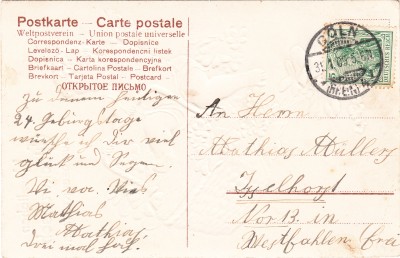 Postkarte - Carte postale
Weltpostverein - Union postale universelle
Correspondenz-Karte - Dopisnice
Levelező-Lap - Korespondenční lístek
Dopisnica - Karta korespondencyjna
Briefkaart - Cartolina Postale - Brefkort
Brevkort - Tarjeta Postal - Postcard
ОТКРЫТОЕ ПИСЬМО
CÖLN
Zu deinem heutigen
24. Geburtstage
wünsche ich dir viel
glück und Segen.
Mathias
Mathias
drei mal hoch!
An Herrn
Mathias Müllers
Isselhorst
Nor 13. in
Westfahlen